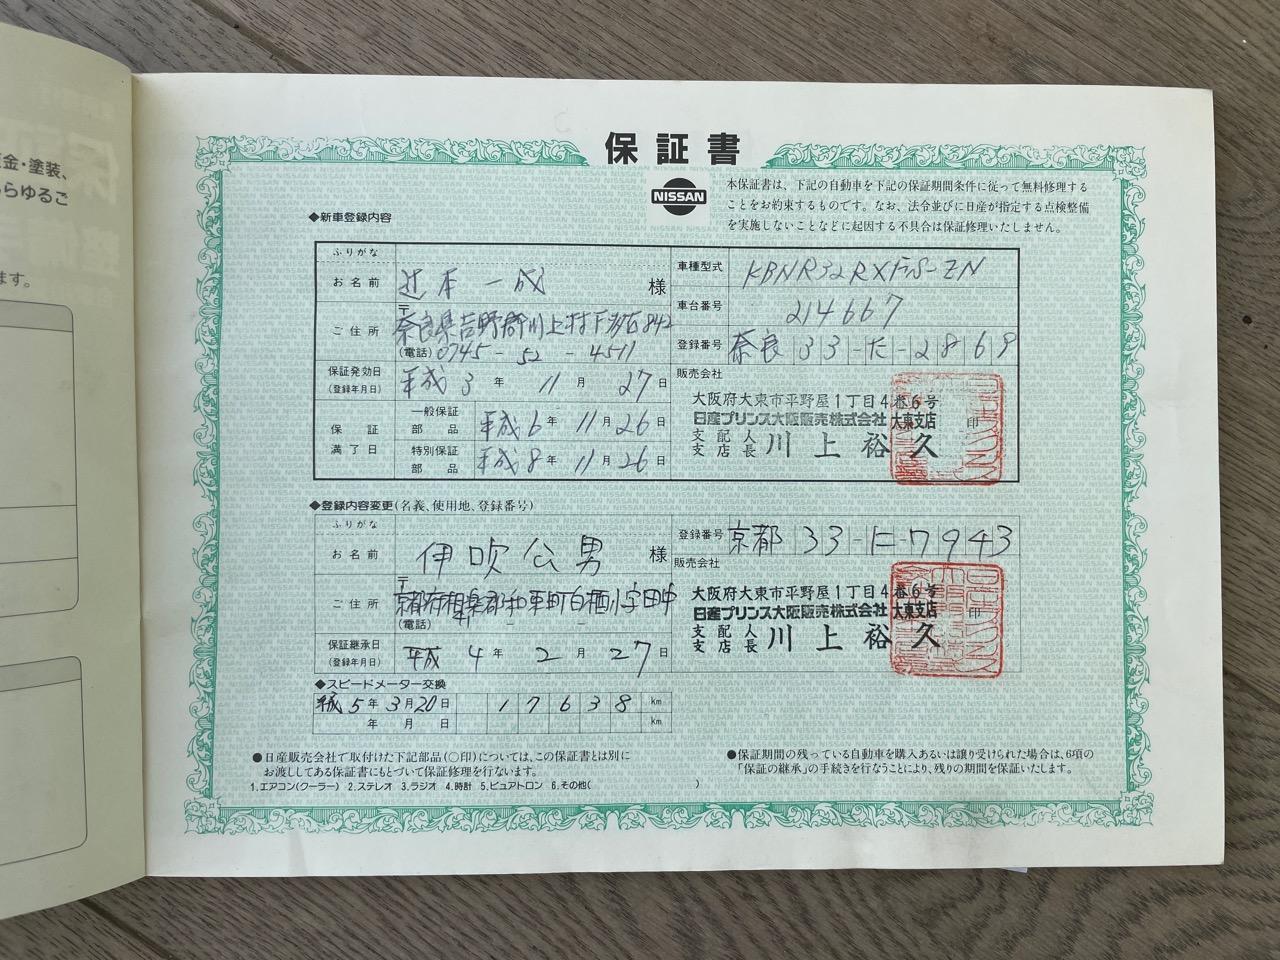 金・塗装、
らゆるご
ます。
保証書
NISSAN
本保証書は、下記の自動車を下記の保証期間条件に従って無料修理する
ことをお約束するものです。なお、法令並びに日産が指定する点検整備
を実施しないことなどに起因する不具合は保証修理いたしません。
◆新車登録内容
ふりがな
お名前 辻本一成 様
ご住所 〒
奈良県吉野郡川上村
(電話) 0745-52-4511
保証発効日
(登録年月日) 平成3年11月27日
保証満了日
一般保証部品 平成6年11月26日
特別保証部品 平成8年11月26日
車種型式 KBNR32RXFS-ZN
車台番号 214667
登録番号 奈良33た-2869
販売会社
大阪府大東市平野屋1丁目4番6号
日産プリンス大阪販売株式会社 大東支店
支配人
支店長 川上裕久 印
◆登録内容変更(名義、使用地、登録番号)
ふりがな
お名前 伊吹公男 様
ご住所 〒
京都府相楽郡和束町白栖小字田中
(電話) - -
保証継承日
(登録年月日) 平成4年2月27日
登録番号 京都33-に-7943
販売会社
大阪府大東市平野屋1丁目4番6号
日産プリンス大阪販売株式会社 大東支店
支配人
支店長 川上裕久 印
◆スピードメーター交換
平成5年3月20日 17638 km
年 月 日 km
●日産販売会社で取付けた下記部品(○印)については、この保証書とは別に
お渡ししてある保証書にもとづいて保証修理を行ないます。
1.エアコン(クーラー) 2.ステレオ 3.ラジオ 4.時計 5.ピュアトロン 6.その他( )
●保証期間の残っている自動車を購入あるいは譲り受けられた場合は、6項の
「保証の継承」の手続きを行なうことにより、残りの期間を保証いたします。